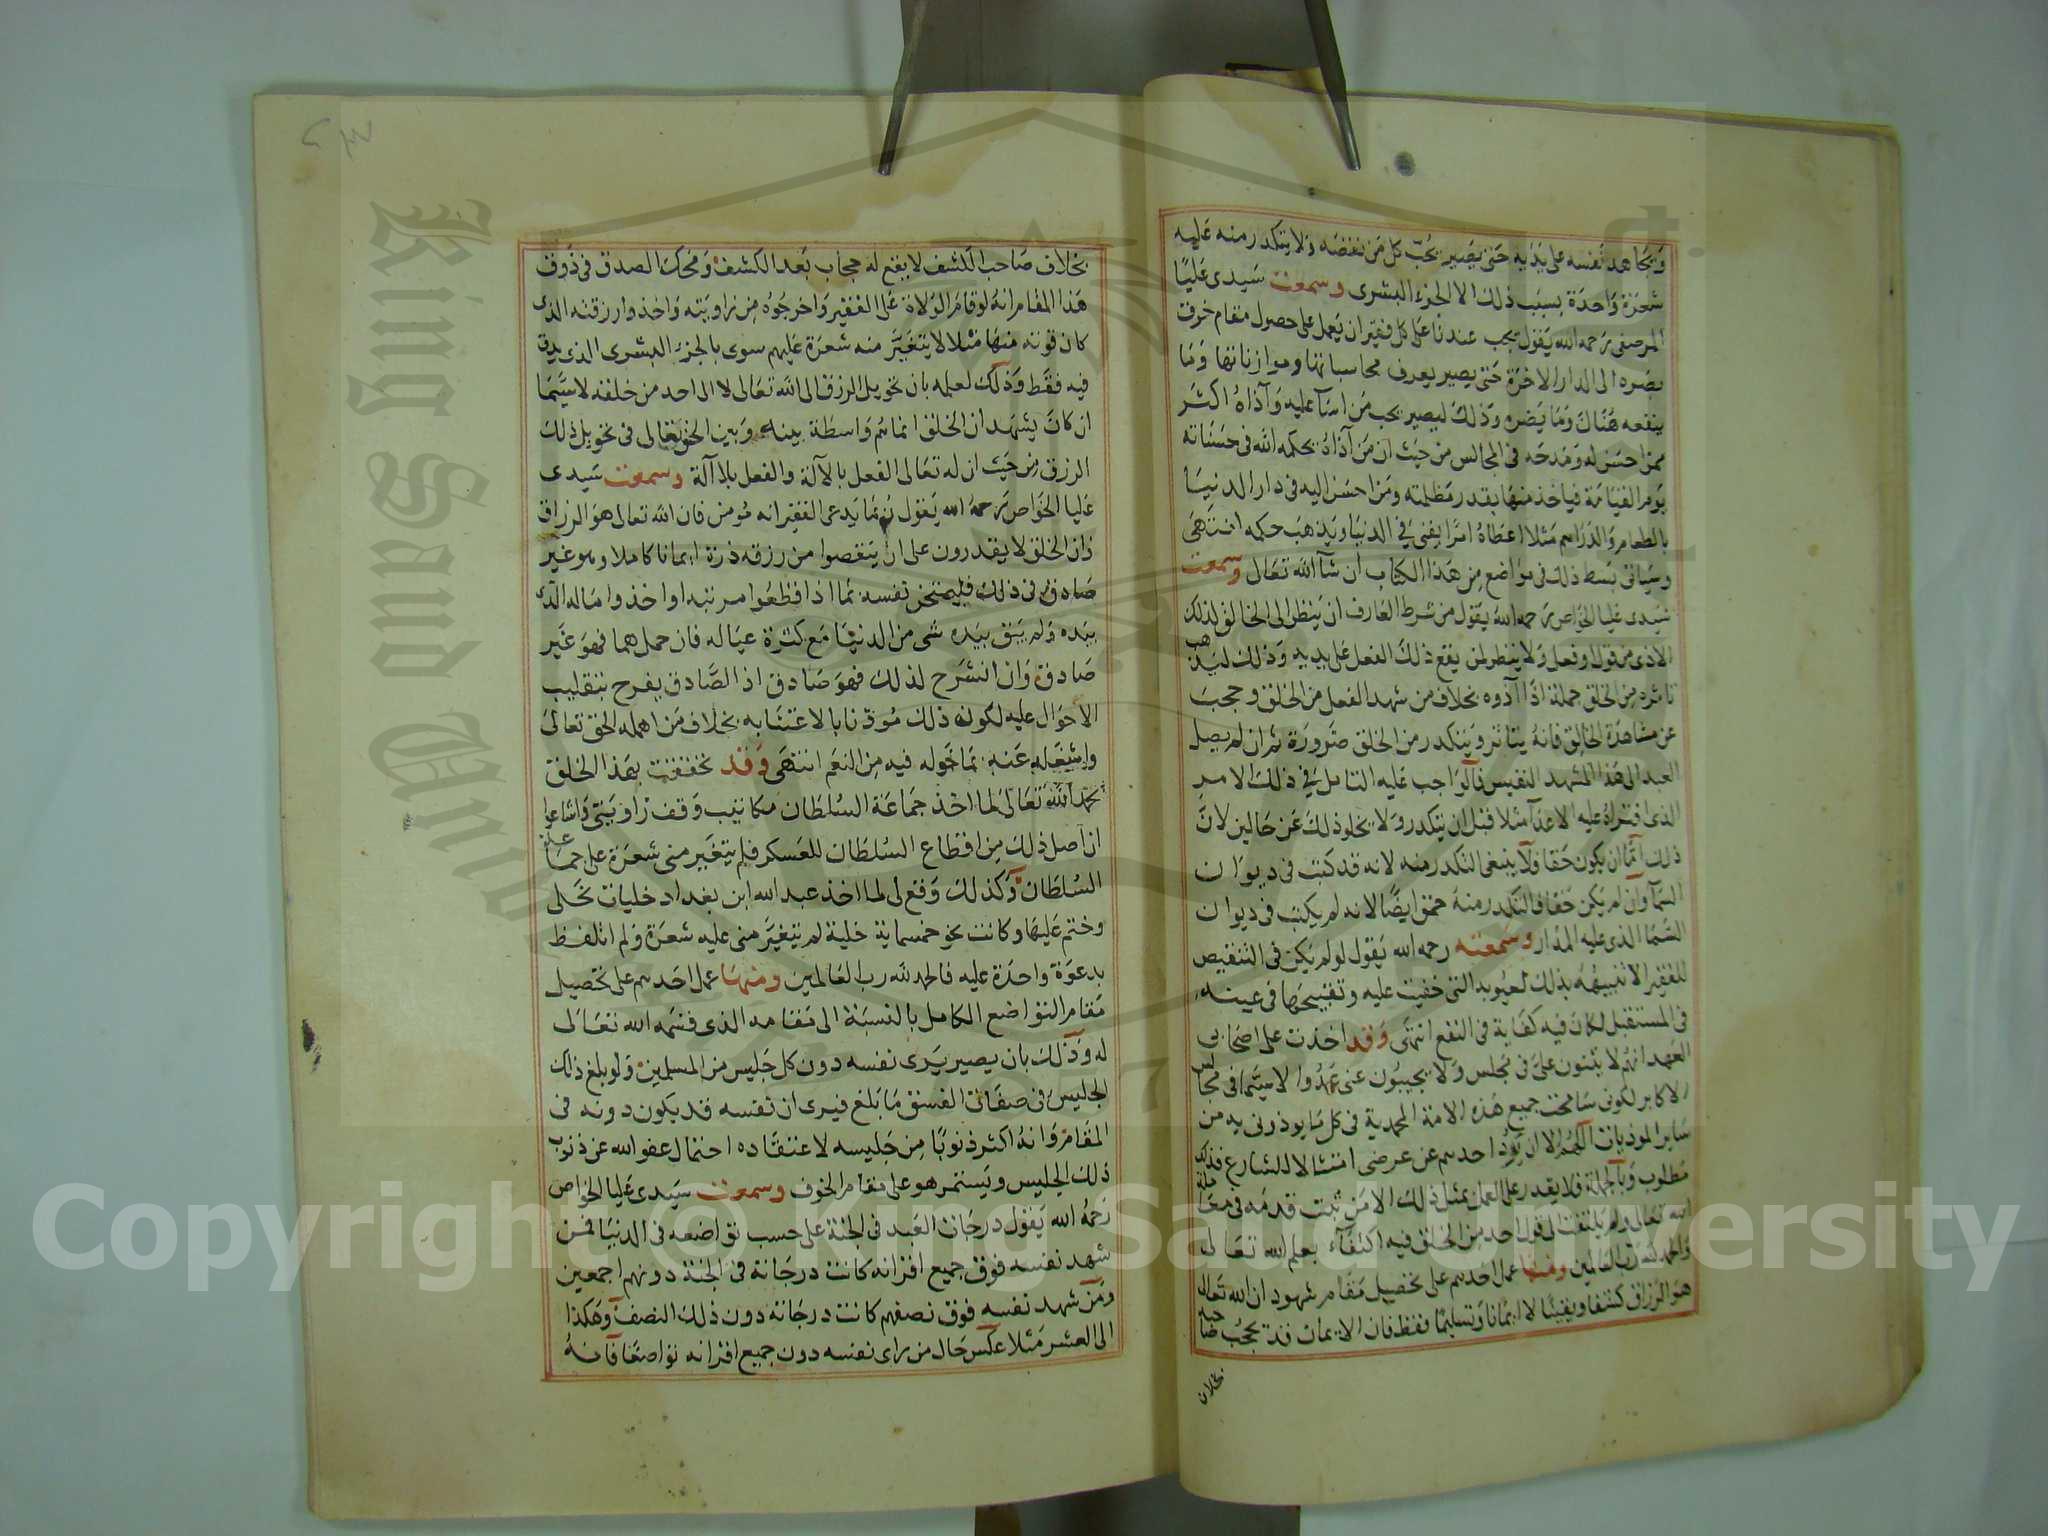 ويجاهد نفسه على يديه حتى يصير يحب كل من نغصه ولا يتكدر منه عليه
شعرة واحدة بسبب ذلك الا الجزء البشرى وسمعت سيدى عليا
المرصفى رحمه الله يقول يجب عندنا على كل فقير ان يعمل على حصول مقام خرق
بصره الى الدار الاخرة حتى يصير يعرف محاسباتها وموازناتها وما
ينفعه هناك وما يضره وذلك ليصير يحب من اسآ عليه وآذاه اكثر
ممن احسن له ومدحه فى المجالس من حيث ان من آذاه يحكمه الله فى حسناته
يوم القيامة فياخذ منها بقدر مظلمته ومن احسن اليه فى دار الدنيا
بالطعام والدراهم مثلا اعطاه امرا يفنى فى الدنيا ويذهب حكمه انتهى
وسياتى بسط ذلك فى مواضع من هذا الكتاب ان شآ الله تعالى وسمعت
سيدى عليا الخواص رحمه الله يقول من شرط العارف ان ينظر الى الخالق لذلك
الاذى من قول وفعل ولا ينظر لمن يقع ذلك الفعل على يديه وذلك ليذهب
تاثره من الخلق جملة اذا آذوه بخلاف من شهد الفعل من الخلق وحجب
عن مشاهدة الخالق فانه يتاثر ويتكدر من الخلق ضرورة ثم ان لم يصل
العبد الى هذا المشهد النفيس فالواجب عليه التامل فى ذلك الامر
الذى افتراه عليه الاعدآ مثلا قبل ان يتكدر ولا يخلو ذلك عن حالين لان
ذلك اما ان يكون حقا فلا ينبغى التكدر منه لانه قد كتب فى ديوان
السمآ وان لم يكن حقا فالتكدر منه حمق ايضا لانه لم يكتب فى ديوان
السما الذى عليه المدار وسمعته رحمه الله يقول لو لم يكن فى التنقيص
للفقير الا تنبيهه بذلك لعيوبه التى خفيت عليه وتقبيحها فى عينه
فى المستقبل لكان فيه كفاية فى النفع انتهى وقد اخذت على اصحابى
العهد انهم لا يثنون على فى مجلس ولا يجيبون عنى عدوا لا سيما فى مجالس
الاكابر لكونى سامحت جميع هذه الامة المحمدية فى كل ما يوذوننى به من
ساير الموذيات اللهم الا ان يذب احدهم عن عرضى امتثالا للشارع فذلك
مطلوب وبالجملة فلا يقدر على العمل بمثل ذلك الا من ثبت قدمه فى معاملة
الله تعالى ولم يلتفت الى قول احد من الخلق فيه اكتفآء بعلم الله تعالى
والحمد لله رب العالمين ومنها عمل احدهم على تحصيل مقام شهود ان الله تعالى
هو الرزاق كشفا ويقينا لا ايمانا وتسليما فقط فان الايمان قد يحجب صاحبه
بخلاف
بخلاف صاحب الكشف لا يقع له حجاب بعد الكشف ومحك الصدق فى ذوق
هذا المقام انه لو قام الولاة على الفقير واخرجوه من زاويته واخذوا رزقته الذى
كان قوته منها مثلا لا يتغير منه شعرة عليهم سوى بالجزء البشرى الذى يدق
فيه فقط وذلك لعلمه بان تحويل الرزق الى الله تعالى لا الى احد من خلقه لا سيما
ان كان يشهد ان الخلق انما هم واسطة بينه وبين الحق تعالى فى تحويل ذلك
الرزق من حيث ان له تعالى الفعل بالآلة والفعل بلا آلة وسمعت سيدى
عليا الخواص رحمه الله يقول ربما يدعى الفقير انه مومن فان الله تعالى هو الرزاق
وان الخلق لا يقدرون على ان ينقصوا من رزقه ذرة ايمانا كاملا وهو غير
صادق فى ذلك فليمتحن نفسه بما اذا قطعوا مرتبه او اخذوا ماله الذى
بيده ولم يبق بيده شى من الدنيا مع كثرة عياله فان حمل هما فهو غير
صادق وان انشرح لذلك فهو صادق اذ الصادق يفرح بتقليب
الاحوال عليه لكون ذلك موذنا بالاعتنا به بخلاف من اهمله الحق تعالى
واشغله عنه بما خوله فيه من النعم انتهى وقد تحققت بهذا الخلق
بحمد الله تعالى لما اخذ جماعة السلطان مكاتيب وقف زاويتى واشاعوا
ان اصل ذلك من اقطاع السلطان للعسكر فلم يتغير منى شعرة على جماعة
السلطان وكذلك وقع لى لما اخذ عبد الله ابن بغداد خليات نحلى
وختم عليها وكانت نحو خمسماية خلية لم يتغير منى عليه شعرة ولم اتلفظ
بدعوة واحدة عليه فالحمد لله رب العالمين ومنها عمل احدهم على تحصيل
مقام التواضع الكامل بالنسبة الى مقامه الذى قسمه الله تعالى
له وذلك بان يصير يرى نفسه دون كل جليس من المسلمين ولو بلغ ذلك
الجليس فى صفات الفسق ما بلغ فيرى ان نفسه قد يكون دونه فى
المقام وانه اكثر ذنوبا من جليسه لاعتقاده احتمال عفو الله عن ذنوب
ذلك الجليس ويستمر هو على مقام الخوف وسمعت سيدى عليا الخواص
رحمه الله يقول درجات العبد فى الجنة على حسب تواضعه فى الدنيا فمن
شهد نفسه فوق جميع اقرانه كانت درجاته فى الجنة دونهم اجمعين
ومن شهد نفسه فوق نصفهم كانت درجاته دون ذلك النصف وهكذا
الى العشر مثلا عكس حال من راى نفسه دون جميع اقرانه تواضعا فانه
King Saud University
Copyright © King Saud University